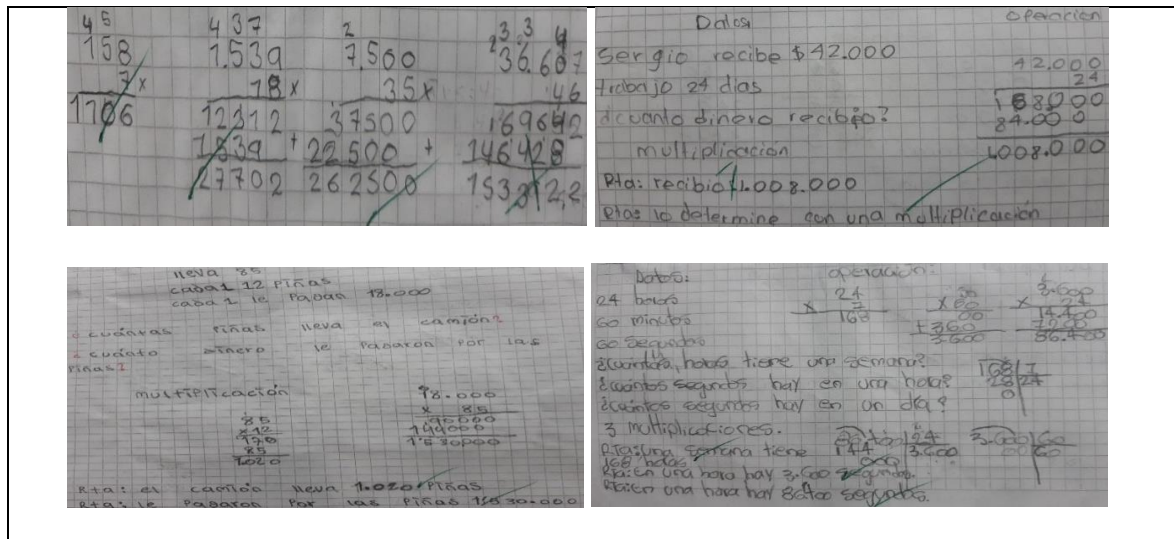 4 5
158
7 x
1106
4 3 7
1.539
18 x
12312
1539 +
27702
2
7.500
35 x
37500
22500 +
262500
3.3 4
36.607
46
146428
Datos
operacion
Sergio recibe $42.000
trabajo 24 dias
¿cuanto dinero recibio?
multiplicacion
Rta: recibio $1.008.000
Rta: lo determine con una multiplicación
42.000
24
168000
84.000
1.008.000
lleva 85
cada 1 12 piñas
cada 1 le pagan 18.000
¿cuántas piñas lleva el camión?
¿cuánto dinero le pagaron por las
piñas?
multiplicación
85
x 12
170
85
1.020
18.000
x 85
90000
144000
1530000
Rta: el camión lleva 1.020 piñas
Rta: le pagaron por las piñas 1.530.000
Datos:
operación:
24 horas
60 minutos
60 segundos
24
x 7
168
60
x 60
00
+ 360
3600
3.600
x 24
14.400
7200
86.400
¿cuántas horas tiene una semana?
¿cuántos segundos hay en una hora?
¿cuántos segundos hay en un día?
3 multiplicaciones.
168 7
28 24
0
86400 24
144 3.600
000
3.600 60
00 60
Rta: una semana tiene
168 horas
Rta: en una hora hay 3.600 segundos.
Rta: en una hora hay 86400 segundos.